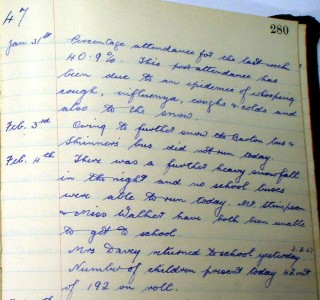 47
280
Jan. 31st Percentage attendance for the last week
40.9%. This poor attendance has
been due to an epidemic of whooping
cough, influenza, coughs & colds and
also to the snow.
Feb. 3rd Owing to further snow the Barton bus &
Skinners bus did not run today.
Feb. 4th There was a further heavy snowfall
in the night and no school buses
were able to run today. Mr Stimpson
& Miss Walker have both been unable
to get to school.
Mrs Davey returned to school yesterday
Number of children present today 42 out
of 192 on roll.